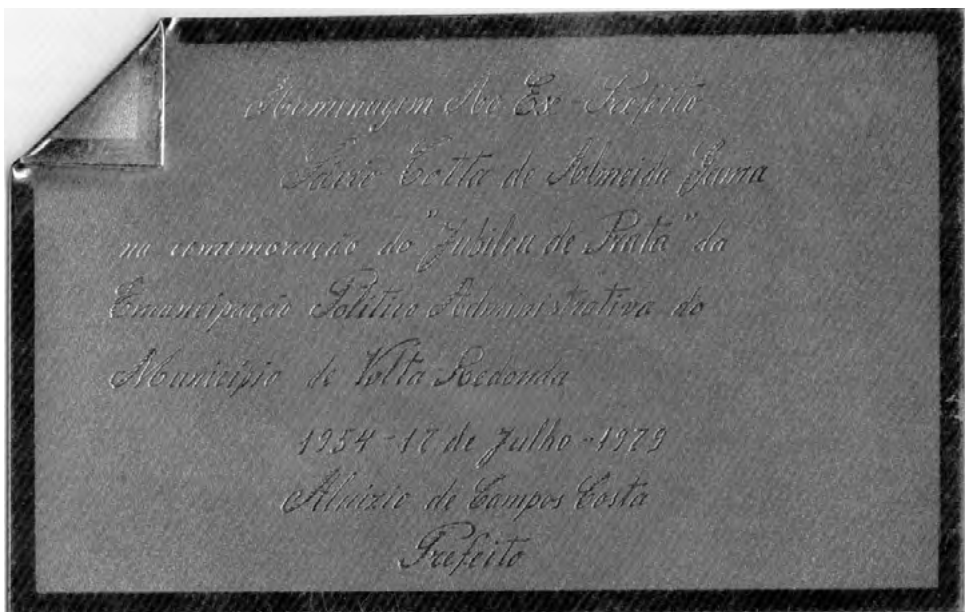 Homenagem Ao Ex-Prefeito
Sávio Cotta de Almeida Gama
na comemoração do "Jubileu de Prata" da
Emancipação Político Administrativa do
Município de Volta Redonda
1954-17 de Julho-1979
Aluizio de Campos Costa
Prefeito